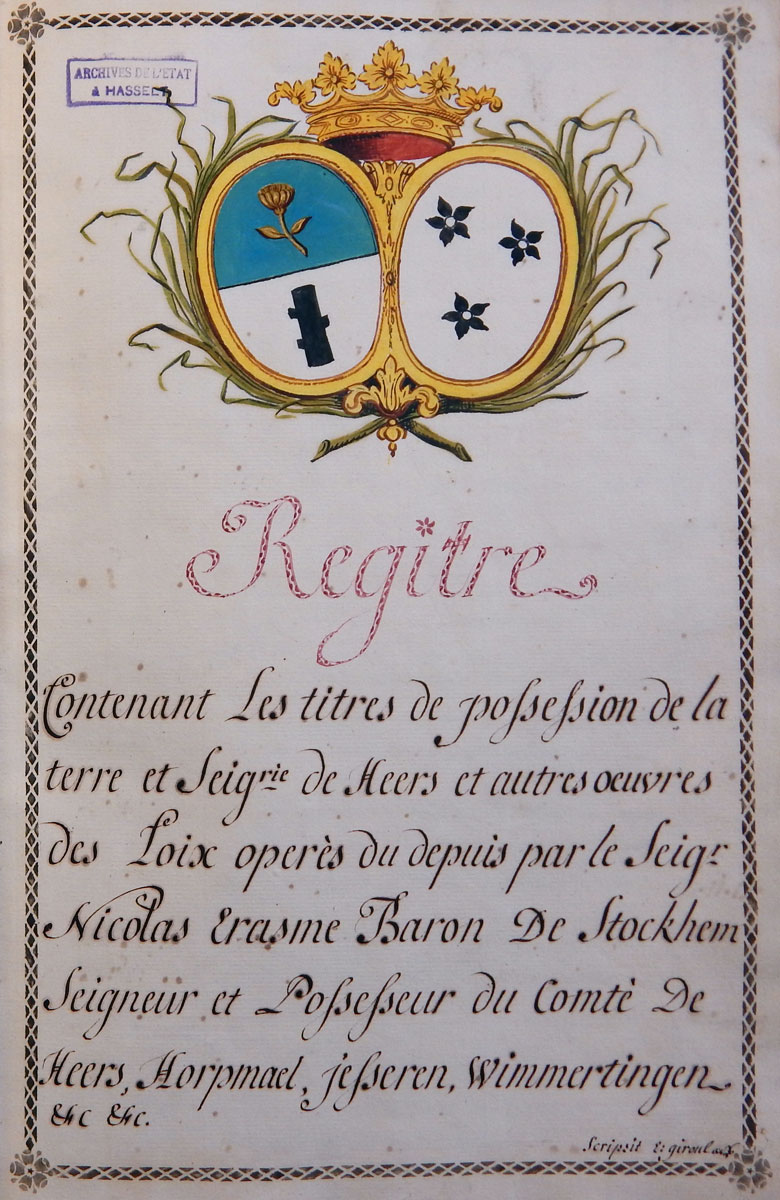 ARCHIVES DE L'ETAT
à HASSELT
Regitre
Contenant Les titres de possession de la
terre et Seigrie de Heers et autres oeuvres
des Loix operès du depuis par le Seigr
Nicolas Erasme Baron De Stockhem
Seigneur et Possesseur du Comtè De
Heers, Horpmael, jesseren, Wimmertingen
&c &c.
Scripsit E: giroulx